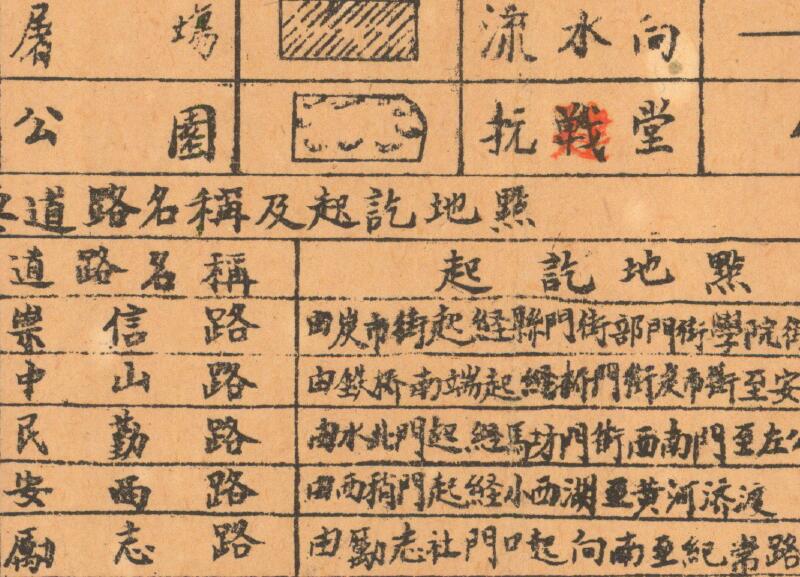 屠場 流水向
公園 抗戰堂
道路名稱及起訖地點
道路名稱 起訖地點
崇信路 由炭市街起経縣門街部門街學院街
中山路 由鉄橋南端起経橋門街炭市街至安
民勤路 由水北門起経馬坊門街西南門至左公
安西路 由西稍門起経小西湖至黃河济渡
勵志路 由勵志社門口起向南至紀常路